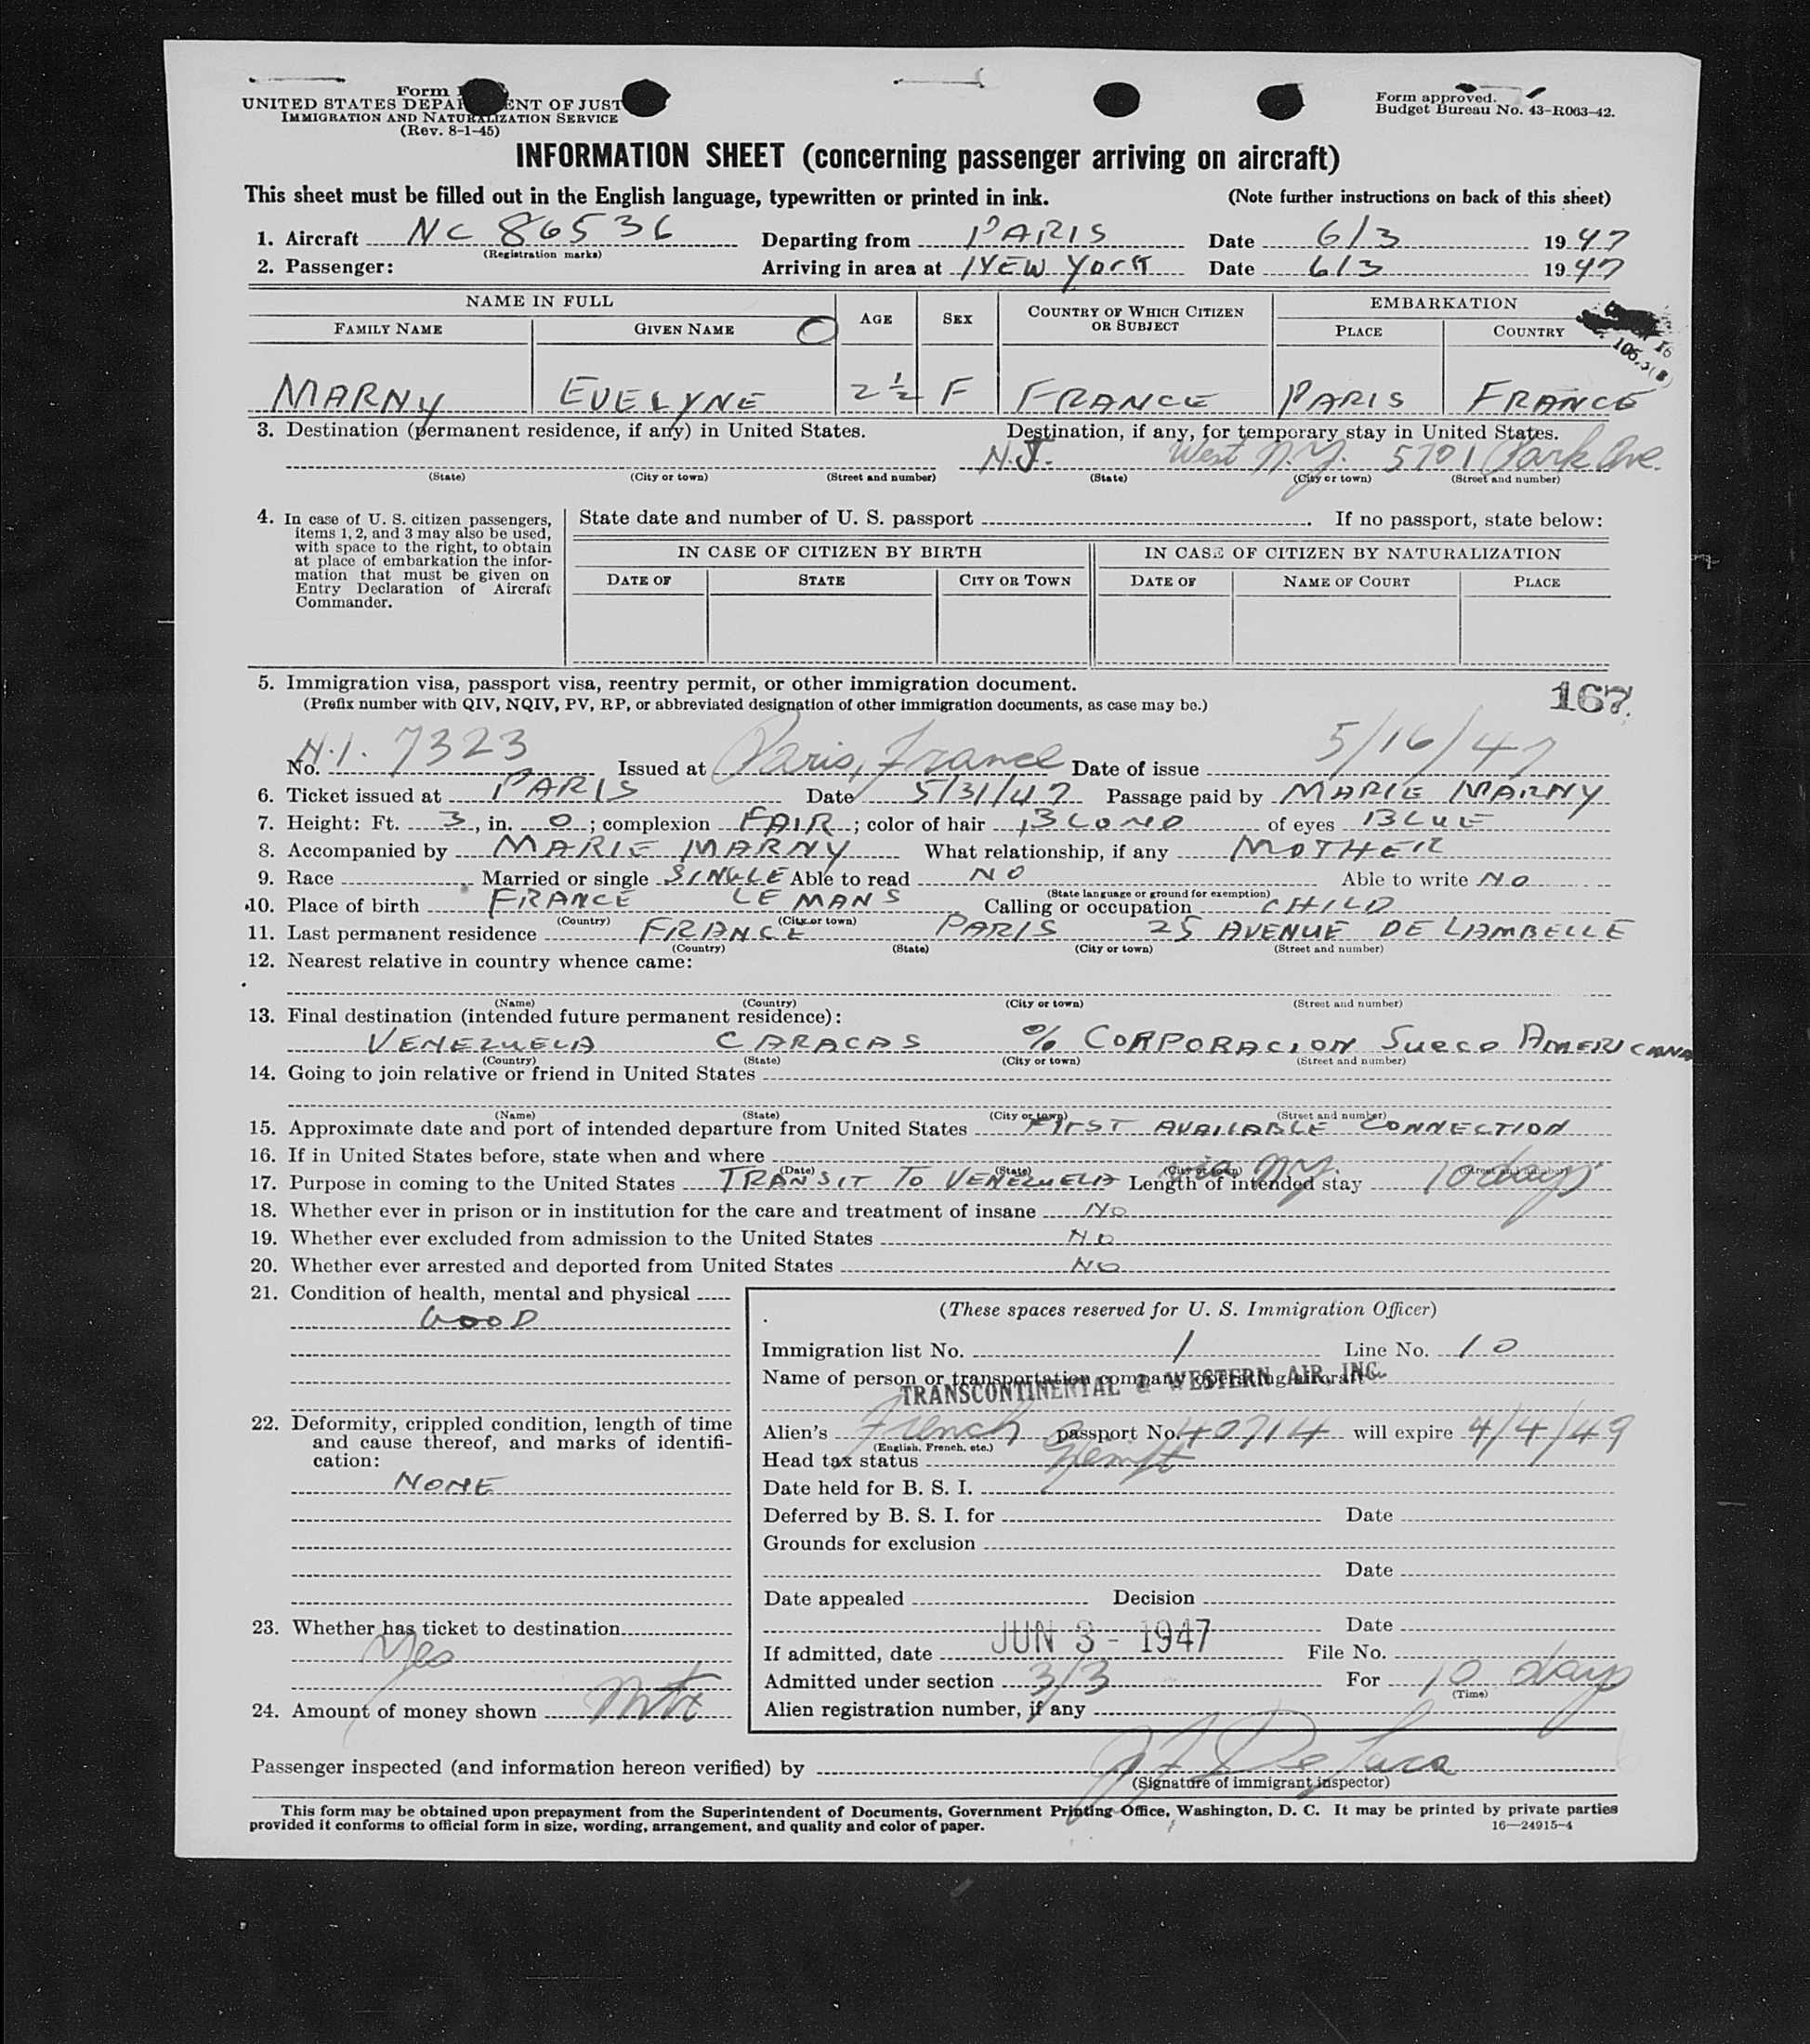 Form
UNITED STATES DEPA ENT OF JUST
IMMIGRATION AND NATURALIZATION SERVICE
(Rev. 8-1-45)
Form approved.
Budget Bureau No. 43-R063-42.
INFORMATION SHEET (concerning passenger arriving on aircraft)
This sheet must be filled out in the English language, typewritten or printed in ink. (Note further instructions on back of this sheet)
1. Aircraft NC 86536 Departing from PARIS Date 6/3 1947
(Registration marks)
2. Passenger: Arriving in area at NEW YORK Date 6/3 1947
NAME IN FULL AGE SEX COUNTRY OF WHICH CITIZEN OR SUBJECT EMBARKATION
FAMILY NAME GIVEN NAME PLACE COUNTRY
16
MARNY EVELYNE 2 1/2 F FRANCE PARIS FRANCE
3. Destination (permanent residence, if any) in United States. Destination, if any, for temporary stay in United States.
N.J. West N.Y. 5701 Park Ave.
(State) (City or town) (Street and number) (State) (City or town) (Street and number)
4. In case of U. S. citizen passengers, items 1, 2, and 3 may also be used, with space to the right, to obtain at place of embarkation the information that must be given on Entry Declaration of Aircraft Commander.
State date and number of U. S. passport . If no passport, state below:
IN CASE OF CITIZEN BY BIRTH IN CASE OF CITIZEN BY NATURALIZATION
DATE OF STATE CITY OR TOWN DATE OF NAME OF COURT PLACE
5. Immigration visa, passport visa, reentry permit, or other immigration document.
(Prefix number with QIV, NQIV, PV, RP, or abbreviated designation of other immigration documents, as case may be.)
167
No. N.I. 7323 Issued at Paris, France Date of issue 5/16/47
6. Ticket issued at PARIS Date 5/31/47 Passage paid by MARIE MARNY
7. Height: Ft. 3, in. 0; complexion FAIR; color of hair BLOND of eyes BLUE
8. Accompanied by MARIE MARNY What relationship, if any MOTHER
9. Race Married or single SINGLE Able to read NO Able to write NO
(State language or ground for exemption)
10. Place of birth FRANCE LE MANS Calling or occupation CHILD
(Country) (City or town)
11. Last permanent residence FRANCE PARIS 25 AVENUE DE LAMBELLE
(Country) (State) (City or town) (Street and number)
12. Nearest relative in country whence came:
(Name) (Country) (City or town) (Street and number)
13. Final destination (intended future permanent residence):
VENEZUELA CARACAS % CORPORACION SUECO AMERICANA
(Country) (State) (City or town) (Street and number)
14. Going to join relative or friend in United States
(Name) (State) (City or town) (Street and number)
15. Approximate date and port of intended departure from United States FIRST AVAILABLE CONNECTION
16. If in United States before, state when and where
(Date) (State) (City or town) (Street and number)
17. Purpose in coming to the United States TRANSIT TO VENEZUELA via N.Y. Length of intended stay 10 days
18. Whether ever in prison or in institution for the care and treatment of insane NO
19. Whether ever excluded from admission to the United States NO
20. Whether ever arrested and deported from United States NO
21. Condition of health, mental and physical
GOOD
22. Deformity, crippled condition, length of time and cause thereof, and marks of identification:
NONE
23. Whether has ticket to destination
Yes
24. Amount of money shown
(These spaces reserved for U. S. Immigration Officer)
Immigration list No. 1 Line No. 10
Name of person or transportation company operating aircraft
TRANSCONTINENTAL & WESTERN AIR, INC.
Alien's French passport No. 40714 will expire 4/4/49
(English, French, etc.)
Head tax status Exempt
Date held for B. S. I.
Deferred by B. S. I. for Date
Grounds for exclusion
Date
Date appealed Decision
Date
If admitted, date JUN 3 - 1947 File No.
Admitted under section 3/3 For 10 days
(Time)
Alien registration number, if any
Passenger inspected (and information hereon verified) by
(Signature of immigrant inspector)
This form may be obtained upon prepayment from the Superintendent of Documents, Government Printing Office, Washington, D. C. It may be printed by private parties
provided it conforms to official form in size, wording, arrangement, and quality and color of paper. 16—24915-4